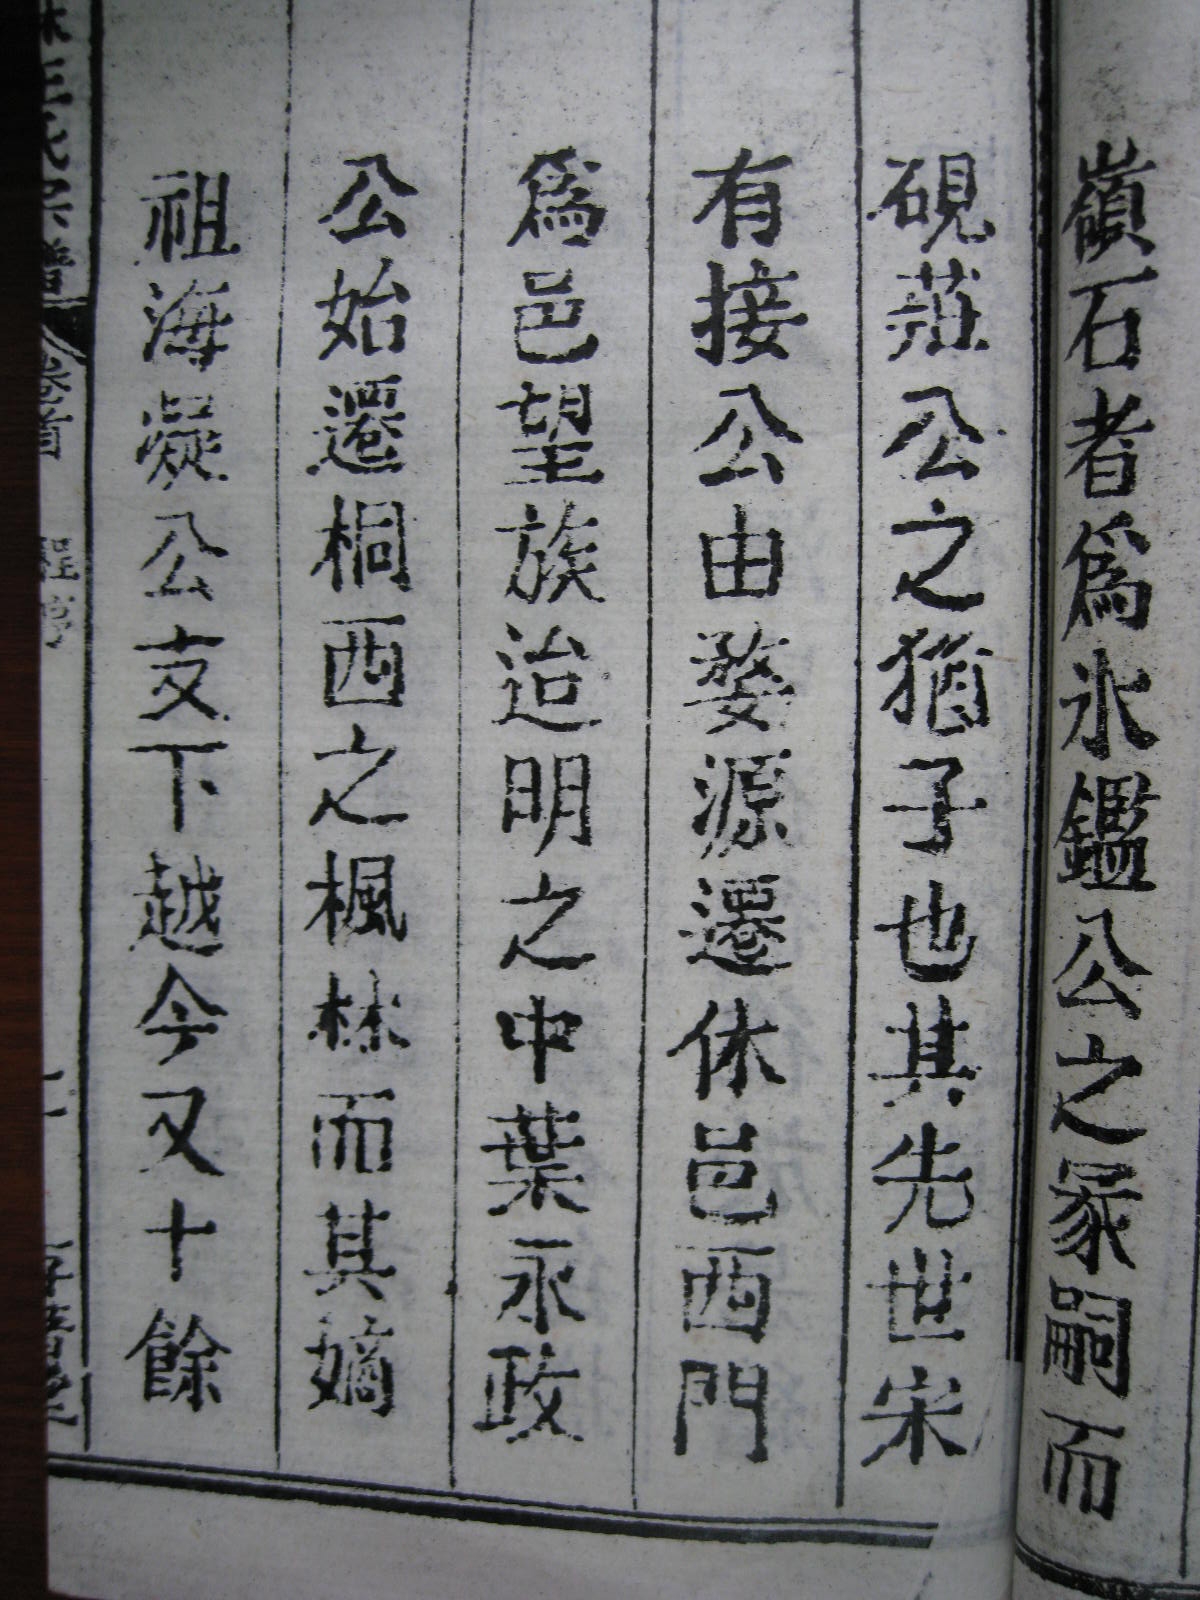 嶺石者爲氷鑑公之冢嗣而
硯荘公之猶子也其先世宋
有接公由婺源遷休邑西門
爲邑望族迨明之中葉永政
公始遷桐西之楓林而其嫡
祖海凝公支下越今又十餘
林王氏宗譜 卷首 程序